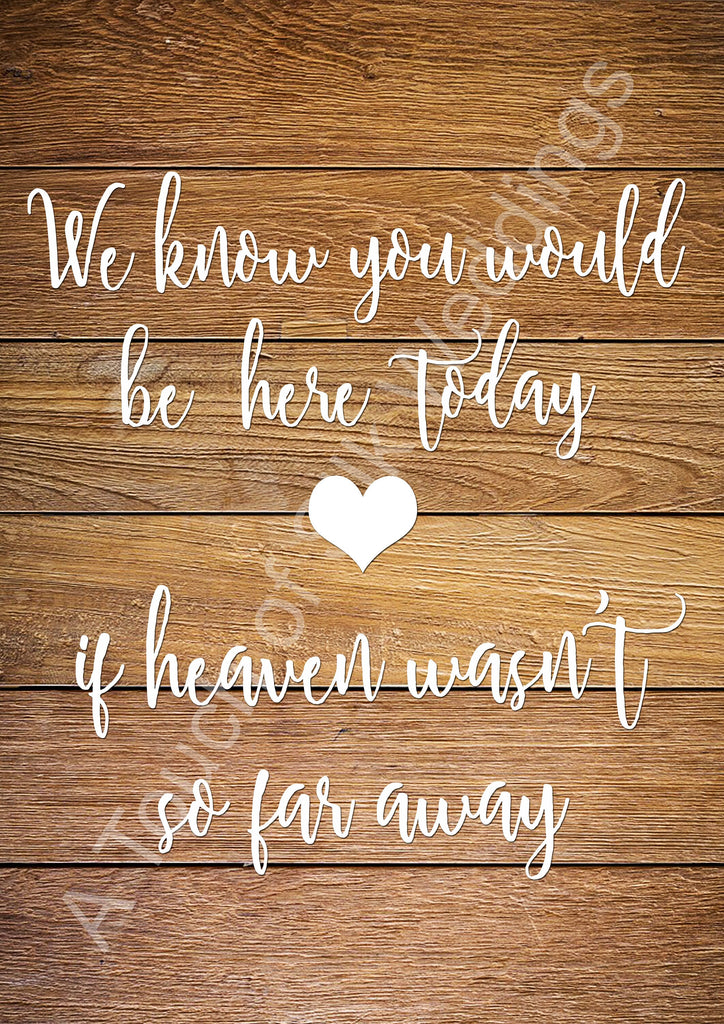 We know you would
be here today
if heaven wasn't
so far away
A Touch of Silk Weddings